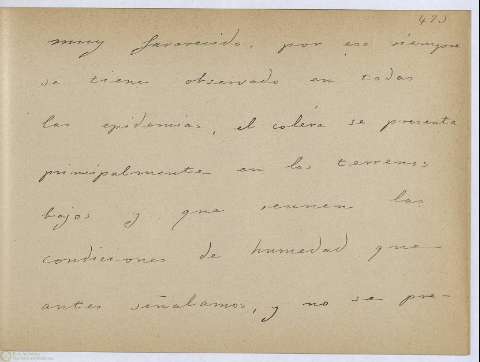 423
muy favorecido, por eso siempre
se tiene observado en todas
las epidemias, el coléra se presenta
principalmente en los terrenos
bajos y que reunen las
condiciones de humedad que
antes señalamos, y no se pre-